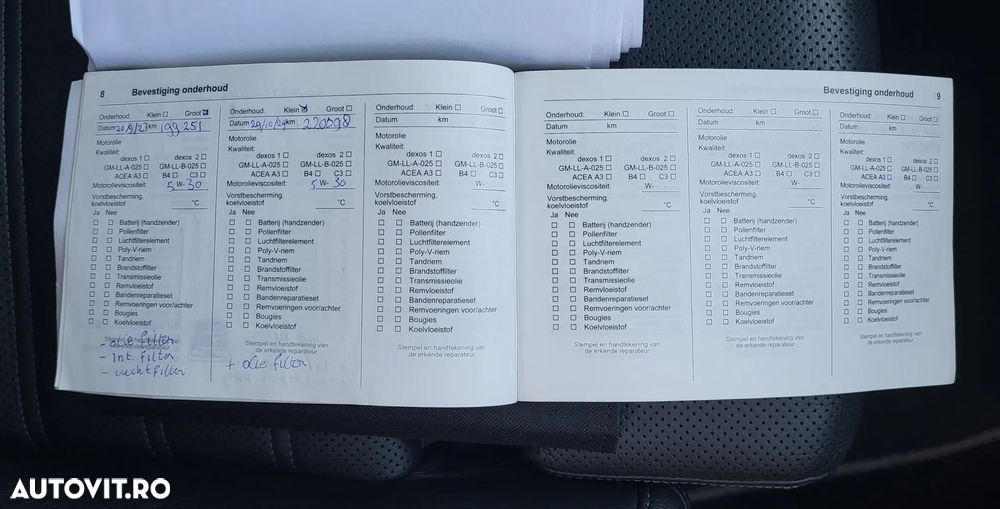 8 Bevestiging onderhoud
Onderhoud: Klein ☐ Groot ☒
Datum 20/9/23 km 199 251
Motorolie
Kwaliteit:
dexos 1 ☐ dexos 2 ☐
GM-LL-A-025 ☐ GM-LL-B-025 ☐
ACEA A3 ☐ B4 ☐ C3 ☐
Motorolieviscositeit: 5 W- 30
Vorstbescherming,
koelvloeistof °C
Ja Nee
☐ ☐ Batterij (handzender)
☐ ☐ Pollenfilter
☐ ☐ Luchtfilterelement
☐ ☐ Poly-V-riem
☐ ☐ Tandriem
☐ ☐ Brandstoffilter
☐ ☐ Transmissieolie
☐ ☐ Remvloeistof
☐ ☐ Bandenreparatieset
☐ ☐ Remvoeringen voor/achter
☐ ☐ Bougies
☐ ☐ Koelvloeistof
- olie filter
- int. filter
- luchtfilter
Onderhoud: Klein ☒ Groot ☐
Datum 29/10/24 km 220598
Motorolie
Kwaliteit:
dexos 1 ☐ dexos 2 ☐
GM-LL-A-025 ☐ GM-LL-B-025 ☐
ACEA A3 ☐ B4 ☐ C3 ☐
Motorolieviscositeit: 5 W- 30
Vorstbescherming,
koelvloeistof °C
Ja Nee
☐ ☐ Batterij (handzender)
☐ ☐ Pollenfilter
☐ ☐ Luchtfilterelement
☐ ☐ Poly-V-riem
☐ ☐ Tandriem
☐ ☐ Brandstoffilter
☐ ☐ Transmissieolie
☐ ☐ Remvloeistof
☐ ☐ Bandenreparatieset
☐ ☐ Remvoeringen voor/achter
☐ ☐ Bougies
☐ ☐ Koelvloeistof
Stempel en handtekening van
de erkende reparateur
+ olie filter
Onderhoud: Klein ☐ Groot ☐
Datum km
Motorolie
Kwaliteit:
dexos 1 ☐ dexos 2 ☐
GM-LL-A-025 ☐ GM-LL-B-025 ☐
ACEA A3 ☐ B4 ☐ C3 ☐
Motorolieviscositeit: W-
Vorstbescherming,
koelvloeistof °C
Ja Nee
☐ ☐ Batterij (handzender)
☐ ☐ Pollenfilter
☐ ☐ Luchtfilterelement
☐ ☐ Poly-V-riem
☐ ☐ Tandriem
☐ ☐ Brandstoffilter
☐ ☐ Transmissieolie
☐ ☐ Remvloeistof
☐ ☐ Bandenreparatieset
☐ ☐ Remvoeringen voor/achter
☐ ☐ Bougies
☐ ☐ Koelvloeistof
Stempel en handtekening van
de erkende reparateur
Bevestiging onderhoud 9
Onderhoud: Klein ☐ Groot ☐
Datum km
Motorolie
Kwaliteit:
dexos 1 ☐ dexos 2 ☐
GM-LL-A-025 ☐ GM-LL-B-025 ☐
ACEA A3 ☐ B4 ☐ C3 ☐
Motorolieviscositeit: W-
Vorstbescherming,
koelvloeistof °C
Ja Nee
☐ ☐ Batterij (handzender)
☐ ☐ Pollenfilter
☐ ☐ Luchtfilterelement
☐ ☐ Poly-V-riem
☐ ☐ Tandriem
☐ ☐ Brandstoffilter
☐ ☐ Transmissieolie
☐ ☐ Remvloeistof
☐ ☐ Bandenreparatieset
☐ ☐ Remvoeringen voor/achter
☐ ☐ Bougies
☐ ☐ Koelvloeistof
Stempel en handtekening van
de erkende reparateur
Onderhoud: Klein ☐ Groot ☐
Datum km
Motorolie
Kwaliteit:
dexos 1 ☐ dexos 2 ☐
GM-LL-A-025 ☐ GM-LL-B-025 ☐
ACEA A3 ☐ B4 ☐ C3 ☐
Motorolieviscositeit: W-
Vorstbescherming,
koelvloeistof °C
Ja Nee
☐ ☐ Batterij (handzender)
☐ ☐ Pollenfilter
☐ ☐ Luchtfilterelement
☐ ☐ Poly-V-riem
☐ ☐ Tandriem
☐ ☐ Brandstoffilter
☐ ☐ Transmissieolie
☐ ☐ Remvloeistof
☐ ☐ Bandenreparatieset
☐ ☐ Remvoeringen voor/achter
☐ ☐ Bougies
☐ ☐ Koelvloeistof
Stempel en handtekening van
de erkende reparateur
Onderhoud: Klein ☐ Groot ☐
Datum km
Motorolie
Kwaliteit:
dexos 1 ☐ dexos 2 ☐
GM-LL-A-025 ☐ GM-LL-B-025 ☐
ACEA A3 ☐ B4 ☐ C3 ☐
Motorolieviscositeit: W-
Vorstbescherming,
koelvloeistof °C
Ja Nee
☐ ☐ Batterij (handzender)
☐ ☐ Pollenfilter
☐ ☐ Luchtfilterelement
☐ ☐ Poly-V-riem
☐ ☐ Tandriem
☐ ☐ Brandstoffilter
☐ ☐ Transmissieolie
☐ ☐ Remvloeistof
☐ ☐ Bandenreparatieset
☐ ☐ Remvoeringen voor/achter
☐ ☐ Bougies
☐ ☐ Koelvloeistof
Stempel en handtekening van
de erkende reparateur
AUTOVIT.RO